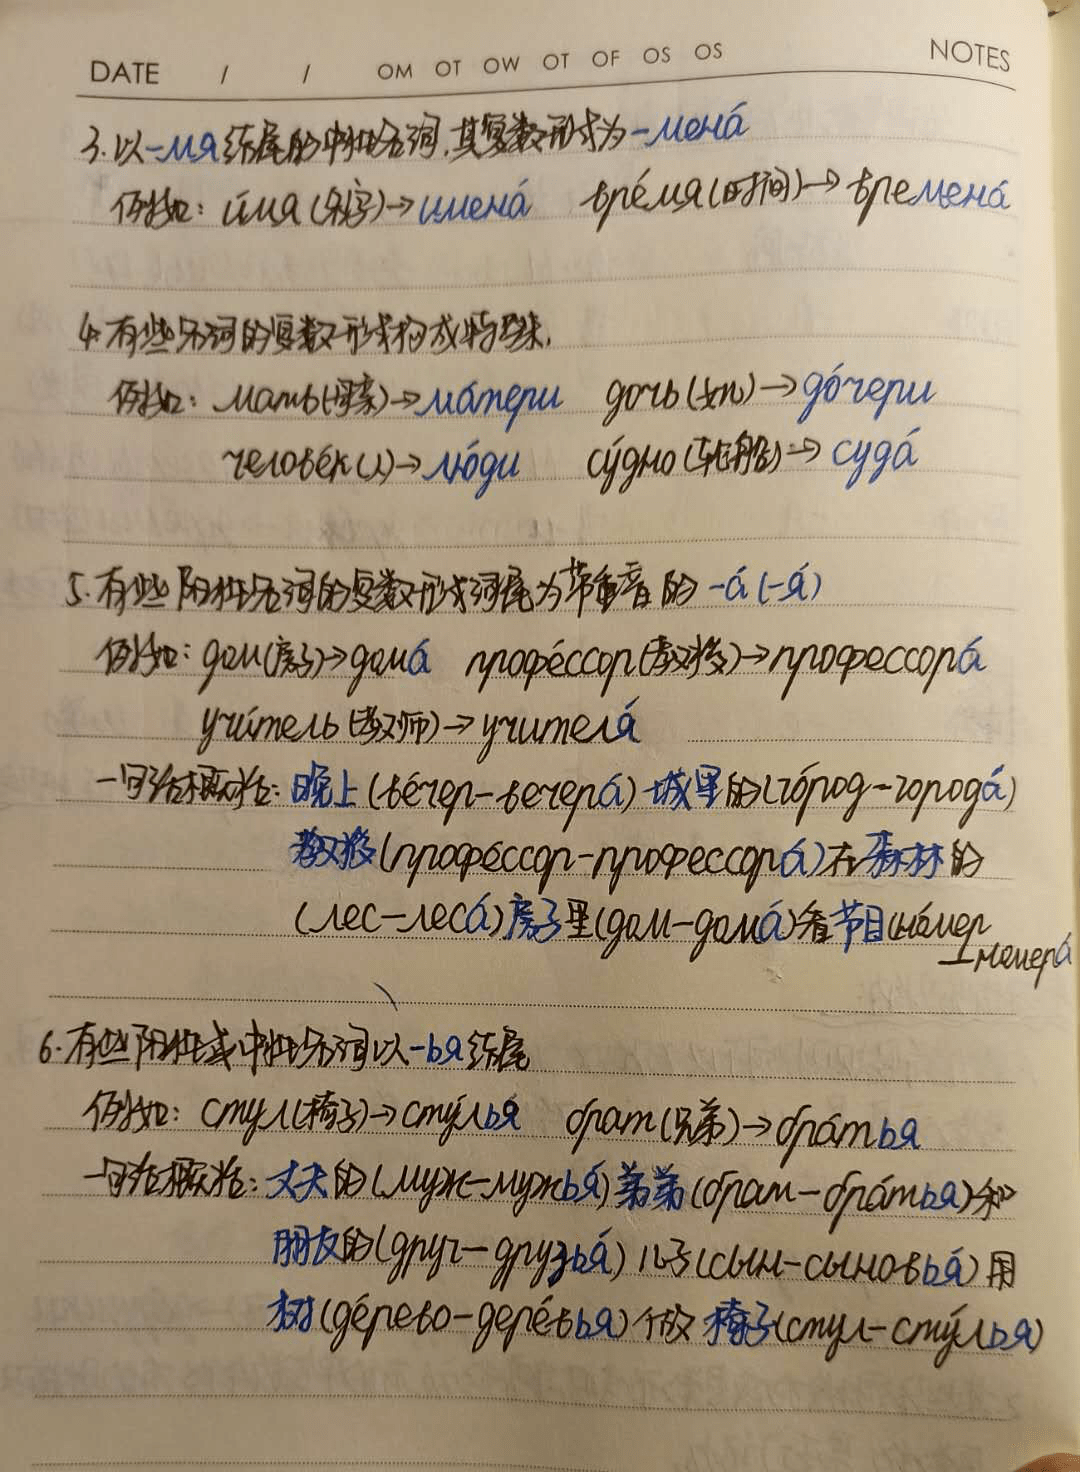 DATE / / OM OT OW OT OF OS OS NOTES
3.以-мя结尾的中性名词,其复数形式为-менá
例如：и́мя(名字)→именá врéмя(时间)→временá
4.有些名词的复数形式构成特殊,
例如：мать(母亲)→мáтери дочь(女儿)→дóчери
человéк(人)→лю́ди су́дно(轮船)→судá
5.有些阳性名词的复数形式词尾为带重音的-á(-я́)
例如：дом(房子)→домá профéссор(教授)→профессорá
учи́тель(教师)→учителя́
一句话概括：晚上(вéчер-вечерá)城里的(гóрод-городá)
教授(профéссор-профессорá)在森林的
(лес-лесá)房子里(дом-домá)看节目(нóмер
-номерá
6.有些阳性或中性名词以-ья结尾
例如：стул(椅子)→сту́лья брат(兄弟)→брáтья
一句话概括：丈夫的(муж-мужья́)弟弟(брат-брáтья)和
朋友的(друг-друзья́)儿子(сын-сыновья́)用
树(дéрево-дерéвья)做椅子(стул-сту́лья)